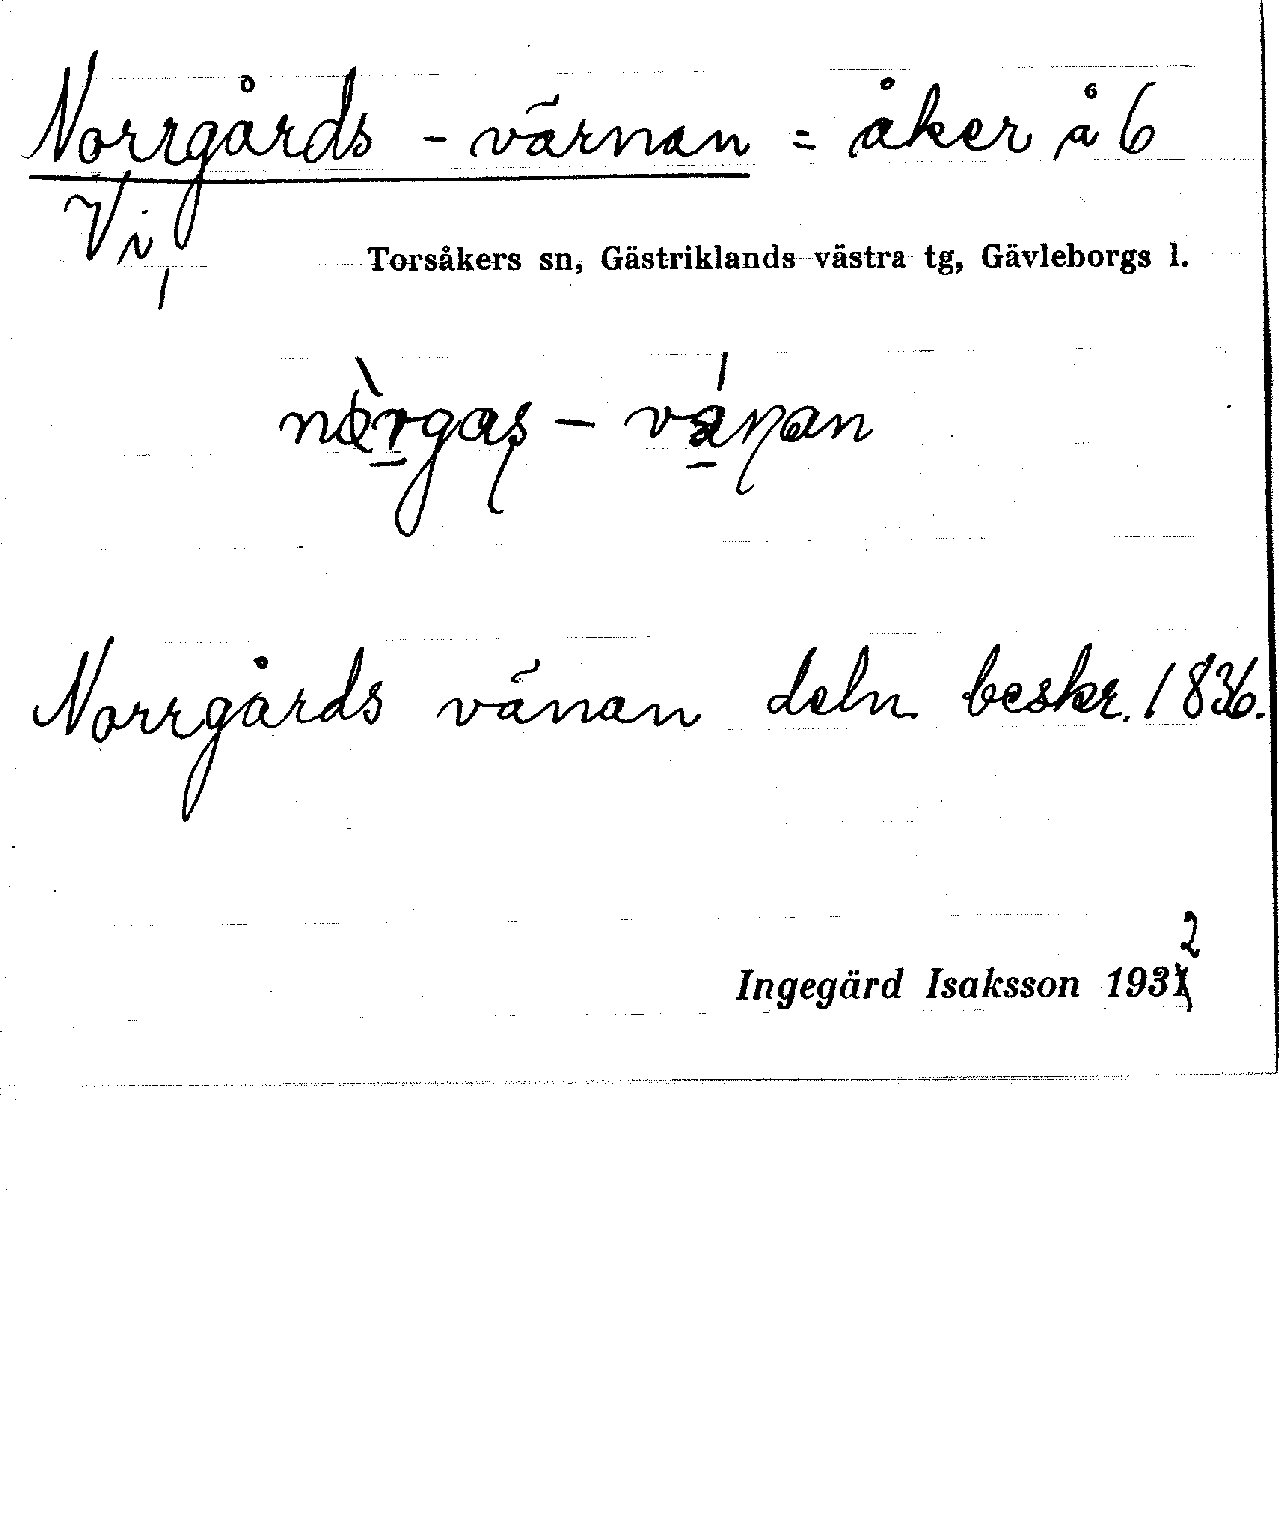 Norrgårds - värnan = åker å 6
Vi,
Torsåkers sn, Gästriklands västra tg, Gävleborgs l.
nòrgaș - vánan
Norrgårds vänan deln beskr. 1836.
2
Ingegärd Isaksson 1931